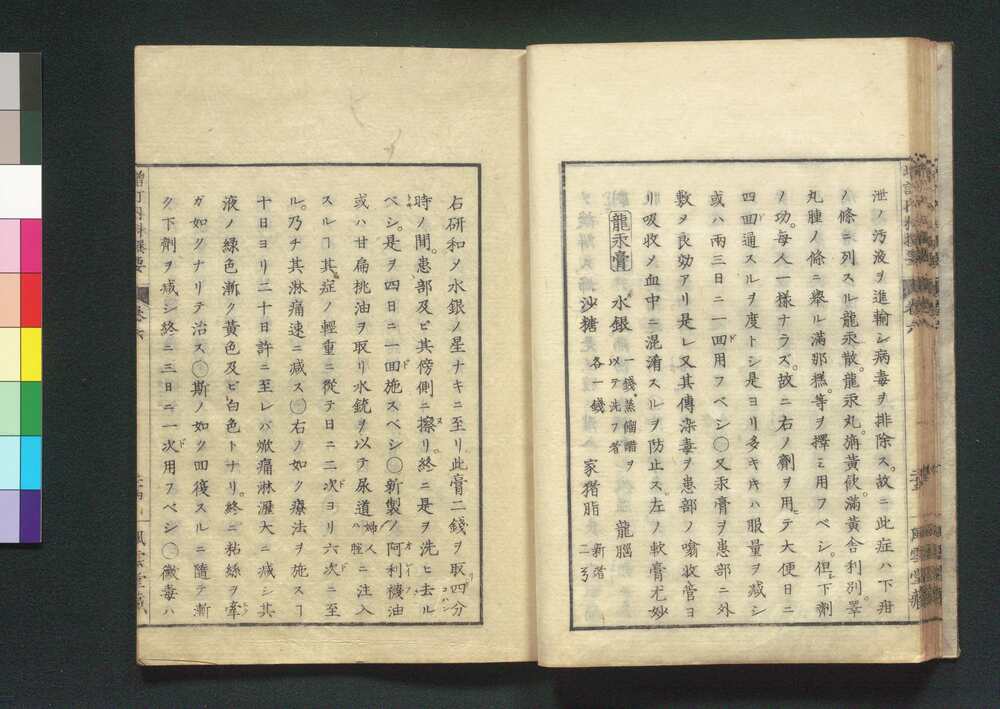 泄ノ汚液ヲ進輸シ病毒ヲ排除ス。故ニ此症ハ下疳
ノ條ニ列スル龍汞散。龍汞丸。滿黄飲。滿黄舎利別。睾
丸腫ノ條ニ擧ル滿那㯽。等ヲ擇ミ用フベシ。但下劑
ノ功。毎人一様ナラズ。故ニ右ノ劑ヲ用テ大便日ニ
四回通スルヲ度トシ是ヨリ多キキハ服量ヲ減シ
或ハ兩三日ニ一回用フベシ○又汞膏ヲ患部ニ外
敷ヲ良効アリ是レ又其傳染毒ヲ患部ノ噏收管ヨ
リ吸收メ血中ニ混淆スルヲ防止ス。左ノ軟膏尤妙
龍汞膏 水銀 一錢。蒸餾 以テ洗フ者 龍腦
沙糖 各一錢 家猪脂
右研和メ水銀ノ星ナキニ至リ。此膏二錢ヲ取四分
時ノ間。患部及ビ其傍側ニ擦リ。終ニ是ヲ洗ヒ去ル
ベシ。是ヲ四日ニ一回施スベシ○新製ノ阿利襪油
或ハ甘扁桃油ヲ取リ水銃ヲ以テ尿道 婦人ハ膣 ニ注入
スルヿ其症ノ輕重ニ從テ日ニ二次ヨリ六次ニ至
ル。乃チ其淋痛速ニ減ス○右ノ如ク療法ヲ施スヿ
十日ヨリ二十日許ニ至レバ焮痛淋瀝大ニ減シ其
液ノ綠色漸ク黄色及ビ白色トナリ。終ニ粘絲ヲ牽
ガ如クナリテ治ス○斯ノ如ク四復スルニ隨テ漸
ク下劑ヲ減シ終ニ三日ニ一次用フベシ○黴毒ハ